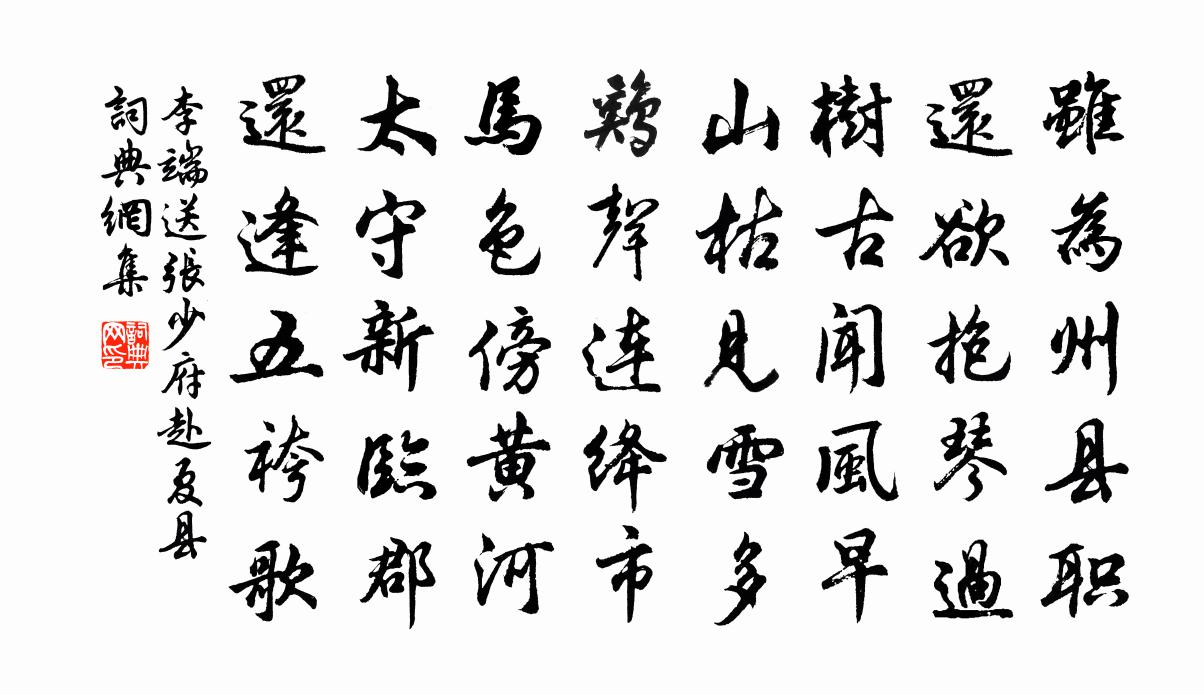 雖為州县职
還欲抱琴過
樹古聞風早
山枯見雪多
鷄聲連絳市
馬色傍黄河
太守新臨郡
還逢五袴歌
李端送張少府赴夏县
詞典網集
詞典网印